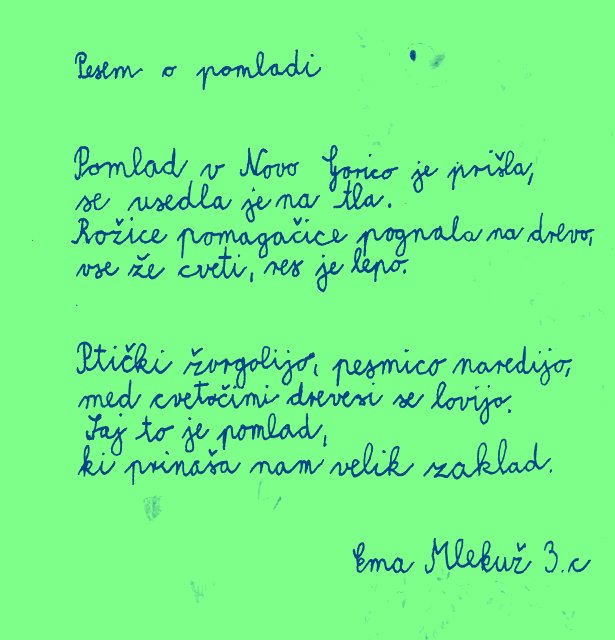 Pesem o pomladi
Pomlad v Novo Gorico je prišla,
se usedla je na tla.
Rožice pomagačice pognala na drevo,
vse že cveti, res je lepo.
Ptički žvrgolijo, pesmico naredijo,
med cvetočimi drevesi se lovijo.
Saj to je pomlad,
ki prinaša nam velik zaklad.
Ema Mlekuž 3.c